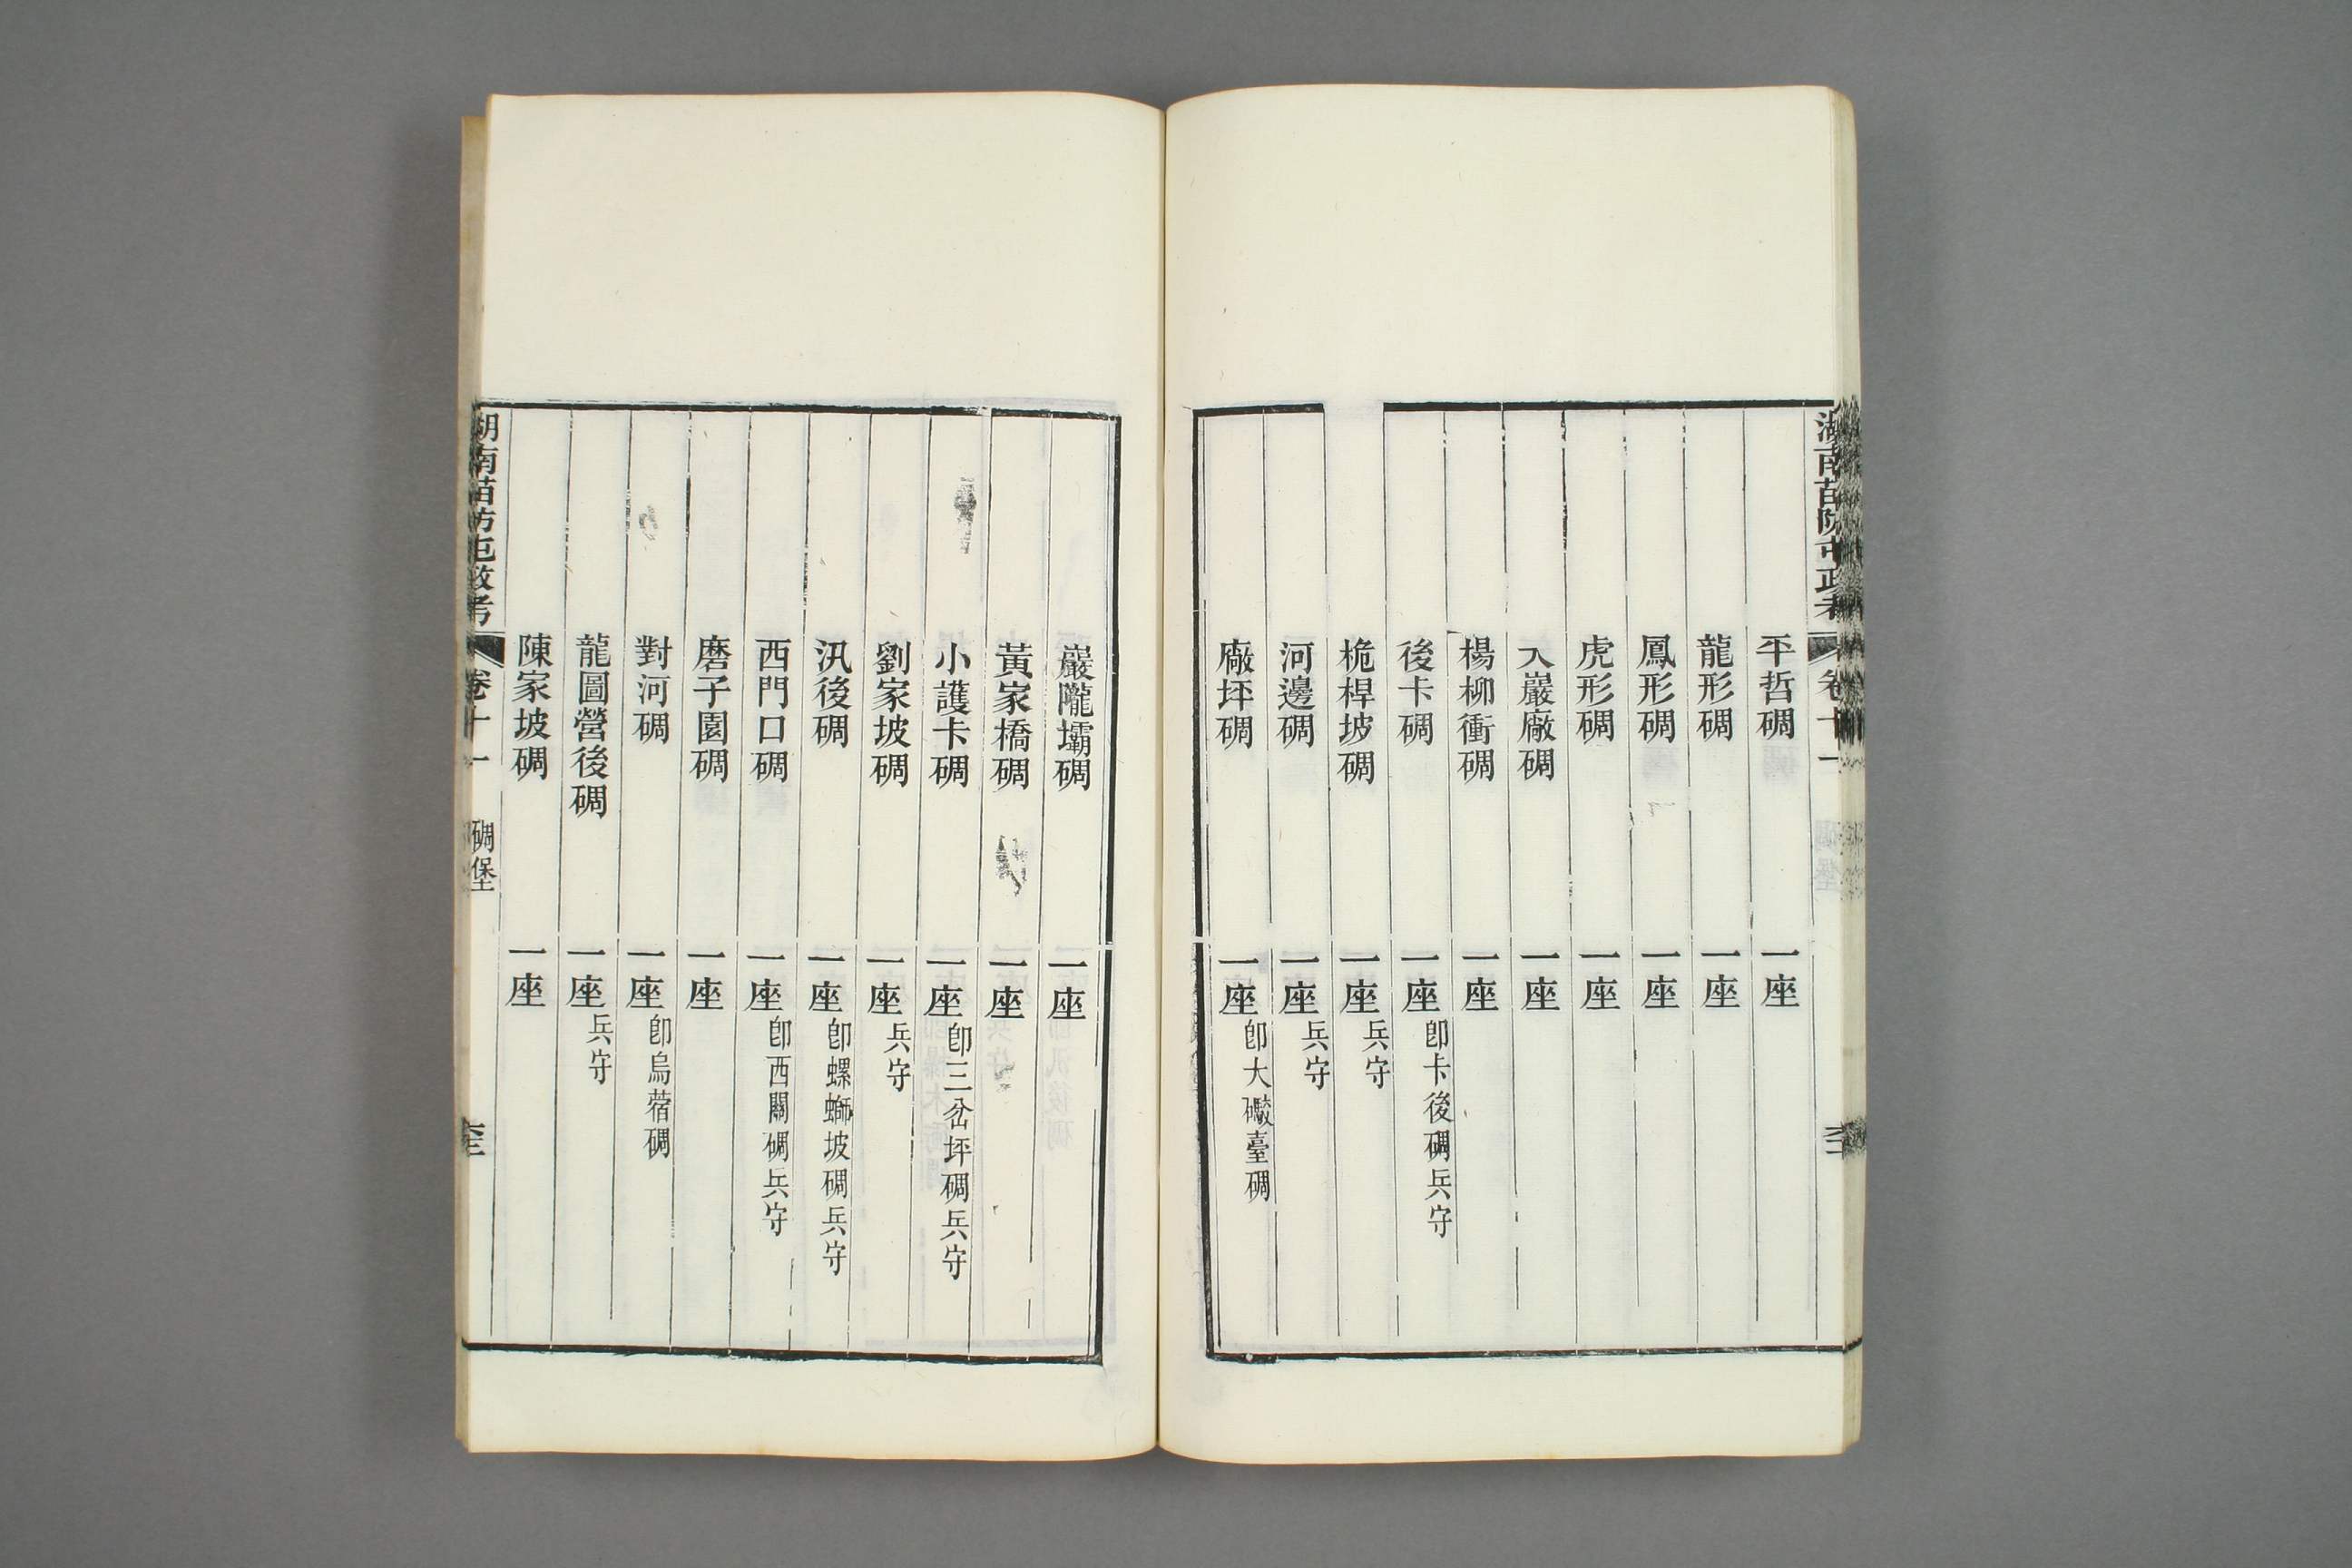 湖南苗防屯政考 卷十一
平哲碉 一座
龍形碉 一座
鳳形碉 一座
虎形碉 一座
大巖廠碉 一座
楊柳衝碉 一座
後卡碉 一座 卽卡後碉兵守
桅桿坡碉 一座 兵守
河邊碉 一座 兵守
廠坪碉 一座 卽大礮臺碉
巖隴壩碉 一座
黃家橋碉 一座
小護卡碉 一座 卽三岔坪碉兵守
劉家坡碉 一座 兵守
汛後碉 一座 卽螺螄坡碉兵守
西門口碉 一座 卽西關碉兵守
磨子園碉 一座
對河碉 一座 卽烏蓿碉
龍圖營後碉 一座 兵守
陳家坡碉 一座
湖南苗防屯政考 卷十一 碉堡